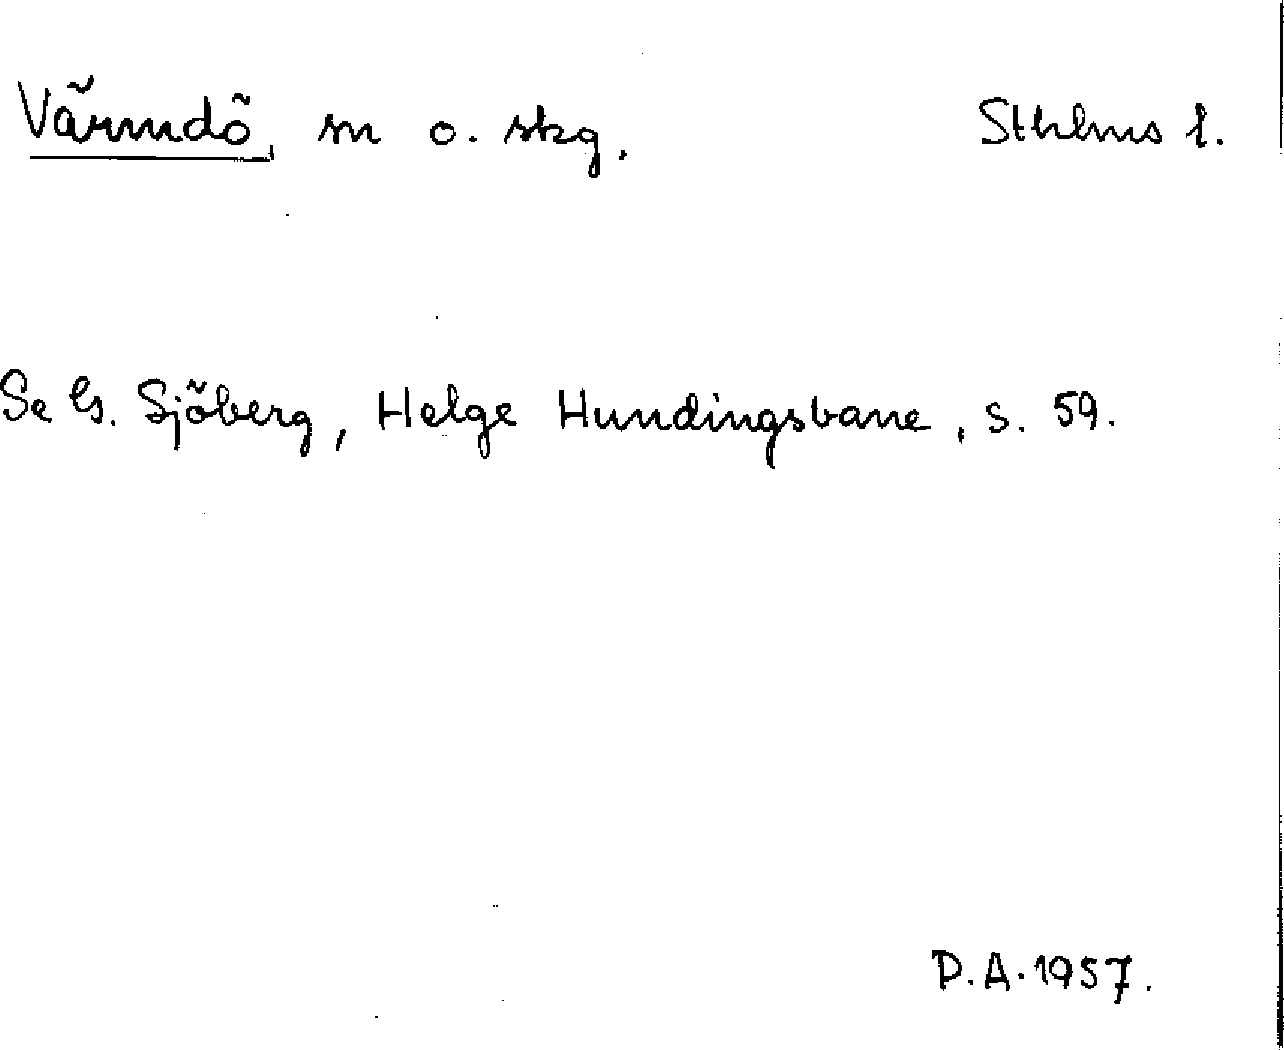 Värmdö, sn o. skg. Sthlms l.
Se G. Sjöberg, Helge Hundingsbane, s. 59.
D.A. 1957.